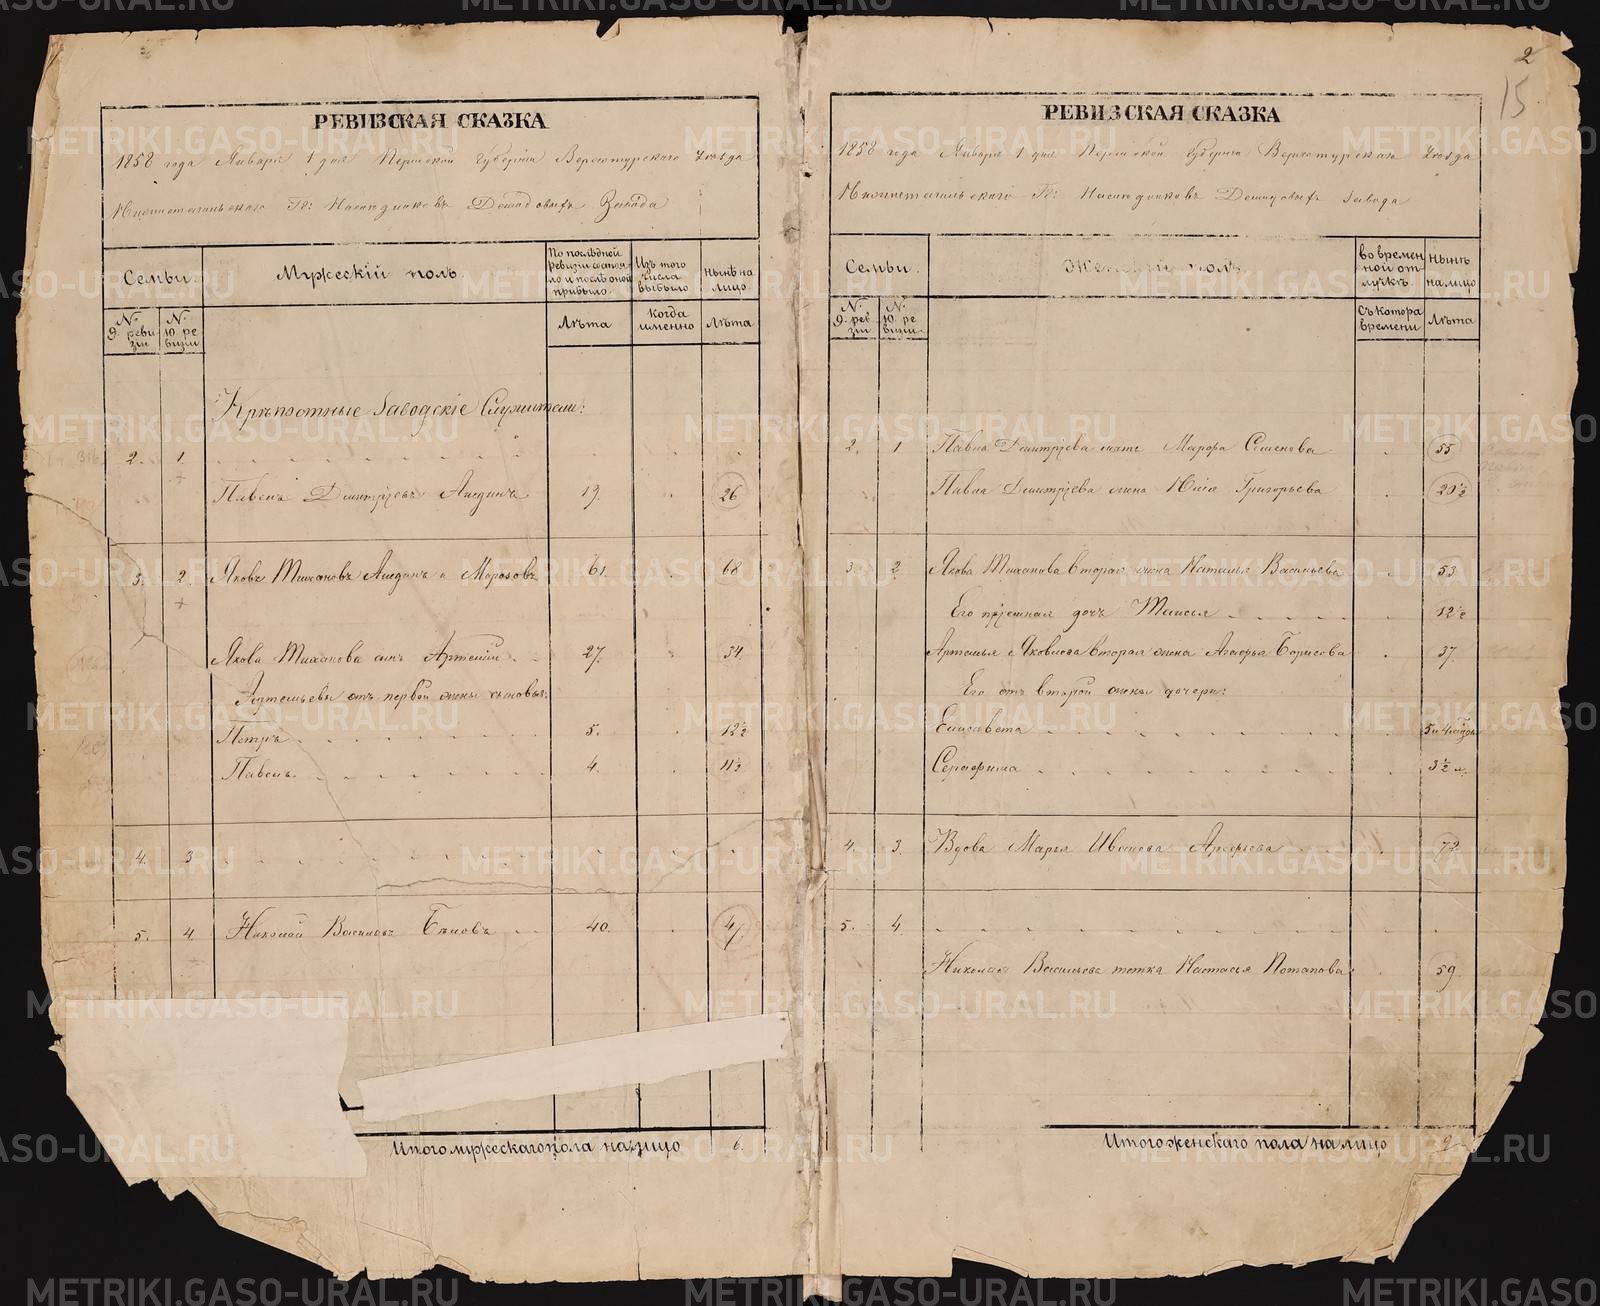 2
15
РЕВИЗСКАЯ СКАЗКА
1858 года Января 1 дня Пермской Губерніи Верхотурскаго Уѣзда
Нижнетагильскаго Гг: Наслѣдниковъ Демидовыхъ Завода
Семьи.
Мужескій полъ.
По послѣдней ревизіи состояло и послѣ оной прибыло.
Изъ того числа выбыло
Нынѣ на лицо
№ 9. ревизіи
№ 10. ревизіи
Лѣта
Когда именно
Лѣта
Крѣпостные Заводскіе Служители:
2. 1.
Павелъ Дмитріевъ 19. 26
3. 2. Яковъ Тихановъ и Морозовъ 61. 68
Якова Тиханова сынъ Артемій 27. 34.
Артемьевы отъ первой жены сыновья:
Петръ 5. 12½
Павелъ 4. 11½
4. 3
5. 4. Николай Васильевъ 40. 47.
Итого мужескаго пола на лицо 6.
РЕВИЗСКАЯ СКАЗКА
1858 года Января 1 дня Пермской Губерніи Верхотурскаго Уѣзда
Нижнетагильскаго Гг: Наслѣдниковъ Демидовыхъ Завода
Семьи.
Женскій полъ.
Во временной отлучкѣ.
Нынѣ на лицо
№ 9. ревизіи
№ 10. ревизіи
Съ котора времени
Лѣта
2. 1. Павла Дмитріева мать Марфа Семенова 55
Павла Дмитріева жена Юлія Григорьева 20½
3. 2. Якова Тиханова вторая жена Наталья Васильева 53
Его пріемная дочь Таисья 12½
Артемья Яковлева вторая жена Агафья Борисова 37.
Его отъ второй жены дочери:
Елисавета 5 и 4
Серафима 3½
4. 3. Вдова Марья Иванова Арефьева 72.
5. 4.
Николая Васильева тетка Настасья Потапова 59.
Итого женскаго пола на лицо 9
METRIKI.GASO-URAL.RU